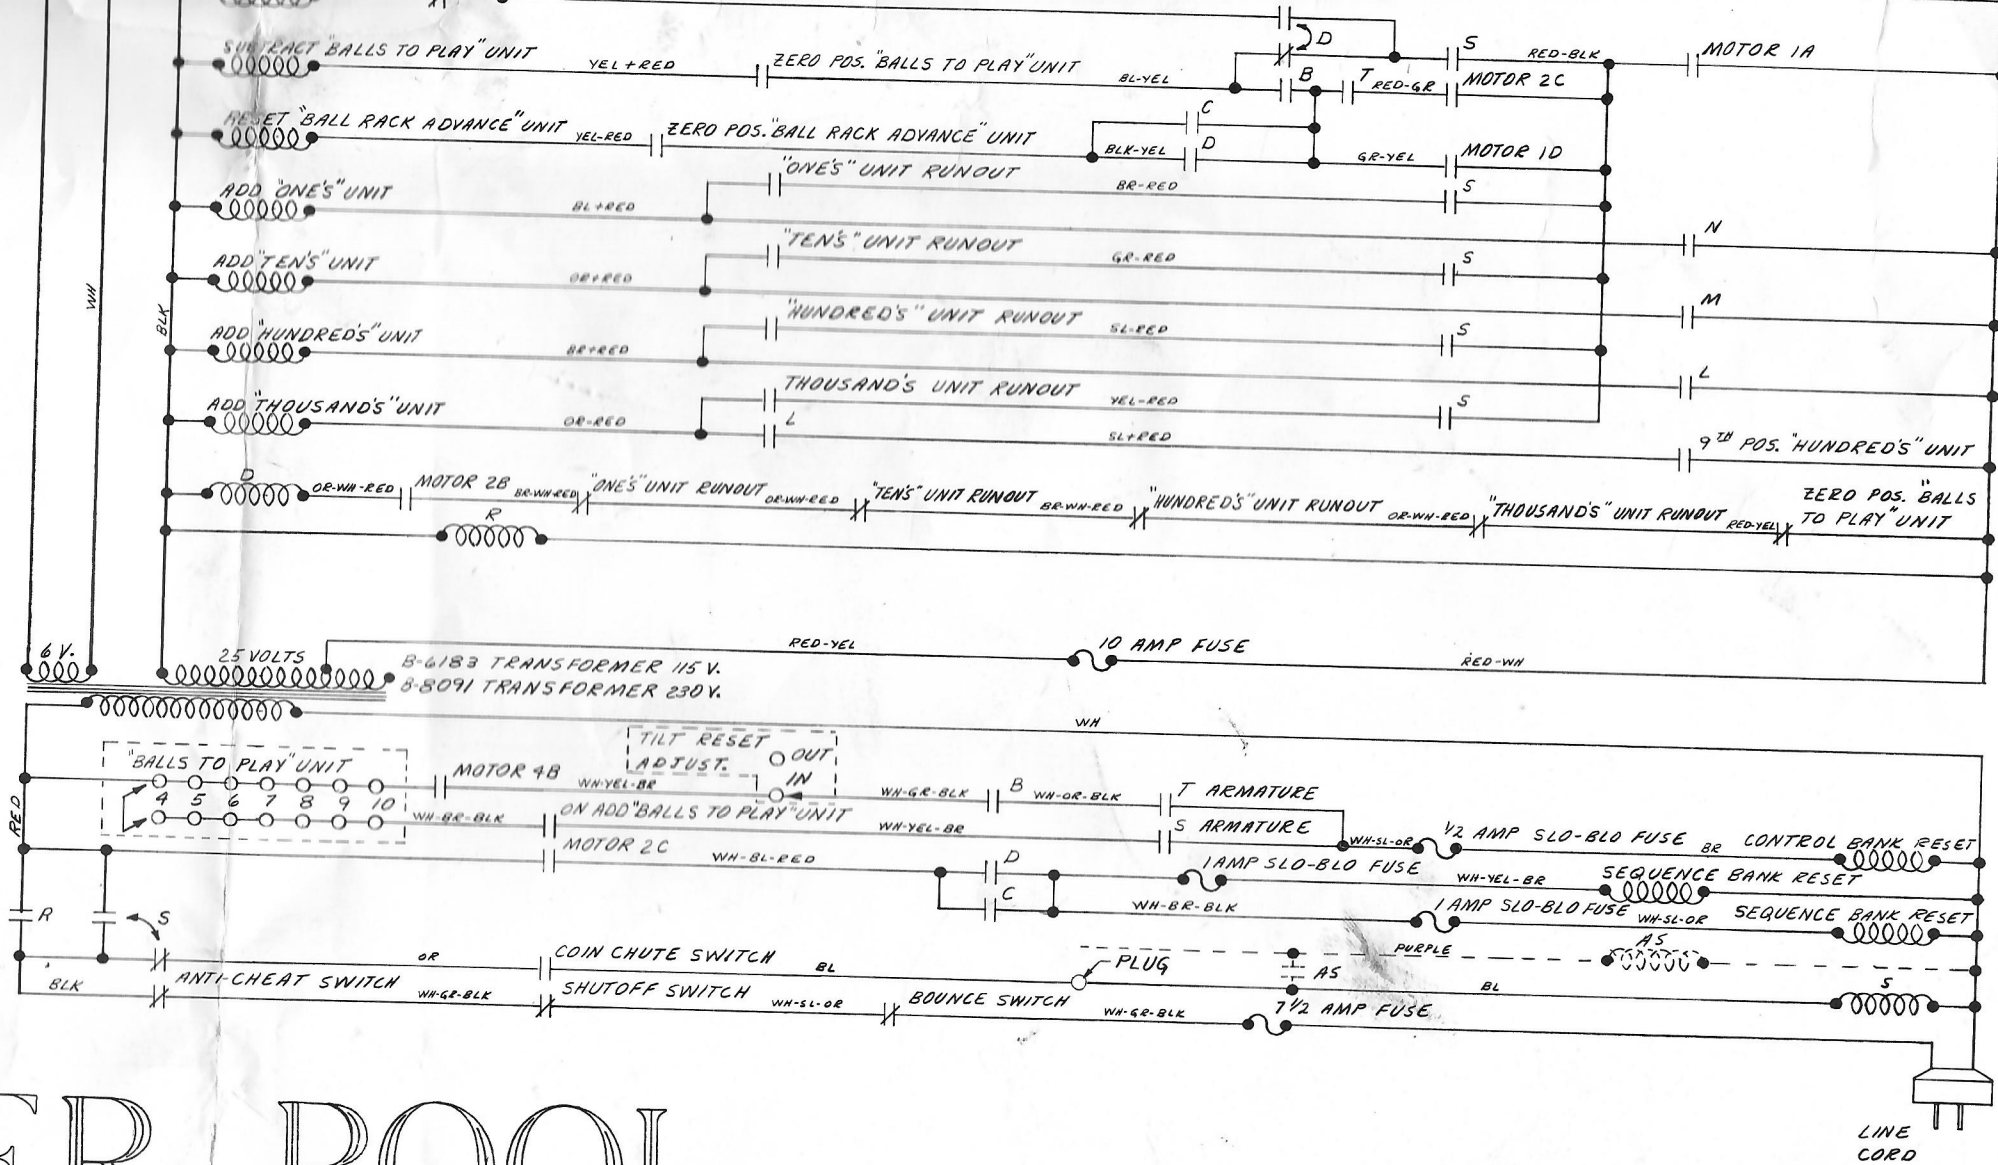 D
S
RED-BLK
MOTOR 1A
SUBTRACT "BALLS TO PLAY" UNIT
YEL+RED
ZERO POS. "BALLS TO PLAY" UNIT
BL-YEL
B
T
RED-GR
MOTOR 2C
RESET "BALL RACK ADVANCE" UNIT
YEL-RED
ZERO POS. "BALL RACK ADVANCE" UNIT
BLK-YEL
C
D
GR-YEL
MOTOR 1D
ADD "ONE'S" UNIT
BL+RED
"ONE'S" UNIT RUNOUT
BR-RED
S
N
ADD "TEN'S" UNIT
OR+RED
"TEN'S" UNIT RUNOUT
GR-RED
S
M
ADD "HUNDRED'S" UNIT
BR+RED
"HUNDRED'S" UNIT RUNOUT
SL-RED
S
L
ADD "THOUSAND'S" UNIT
OR-RED
THOUSAND'S UNIT RUNOUT
YEL-RED
S
L
SL+RED
9TH POS. "HUNDRED'S" UNIT
WH
BLK
D
OR-WH-RED
MOTOR 2B
BR-WH-RED
"ONE'S" UNIT RUNOUT
OR-WH-RED
"TEN'S" UNIT RUNOUT
BR-WH-RED
"HUNDRED'S" UNIT RUNOUT
OR-WH-RED
"THOUSAND'S" UNIT RUNOUT
RED-YEL
ZERO POS. "BALLS
TO PLAY" UNIT
R
6 V.
25 VOLTS
RED-YEL
10 AMP FUSE
RED-WH
B-6183 TRANSFORMER 115 V.
B-8091 TRANSFORMER 230 V.
WH
RED
"BALLS TO PLAY" UNIT
4 5 6 7 8 9 10
MOTOR 4B
WH-YEL-BR
TILT RESET
ADJUST.
OUT
IN
WH-GR-BLK
B
WH-OR-BLK
T ARMATURE
WH-BR-BLK
ON ADD "BALLS TO PLAY" UNIT
WH-YEL-BR
S ARMATURE
WH-SL-OR
1/2 AMP SLO-BLO FUSE
BR
CONTROL BANK RESET
MOTOR 2C
WH-BL-RED
D
1 AMP SLO-BLO FUSE
WH-YEL-BR
SEQUENCE BANK RESET
C
WH-BR-BLK
1 AMP SLO-BLO FUSE
WH-SL-OR
SEQUENCE BANK RESET
R
S
OR
COIN CHUTE SWITCH
BL
PLUG
AS
PURPLE
AS
BL
S
BLK
ANTI-CHEAT SWITCH
WH-GR-BLK
SHUTOFF SWITCH
WH-SL-OR
BOUNCE SWITCH
WH-GR-BLK
7 1/2 AMP FUSE
LINE
CORD
ER POOL